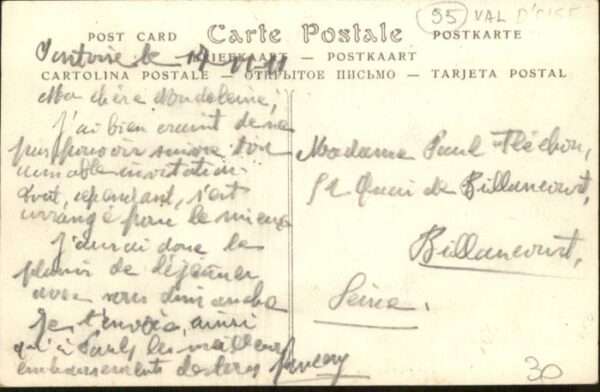 95 VAL D'OISE
POST CARD Carte Postale POSTKARTE
BRIEFKAART — POSTKAART
CARTOLINA POSTALE — ОТКРЫТОЕ ПИСЬМО — TARJETA POSTAL
Pontoise le
Ma chère Madeleine,
J'ai bien craint de ne
pas pouvoir suivre ton
aimable invitation.
Tout, cependant, s'est
arrangé pour le mieux
J'aurai donc le
plaisir de déjeuner
avec vous dimanche
Je t'envoie, ainsi
qu'à Paul, les meilleurs
embrassements de
Madame Paul Fléchon,
52 Quai de Billancourt,
Billancourt,
Seine.
30